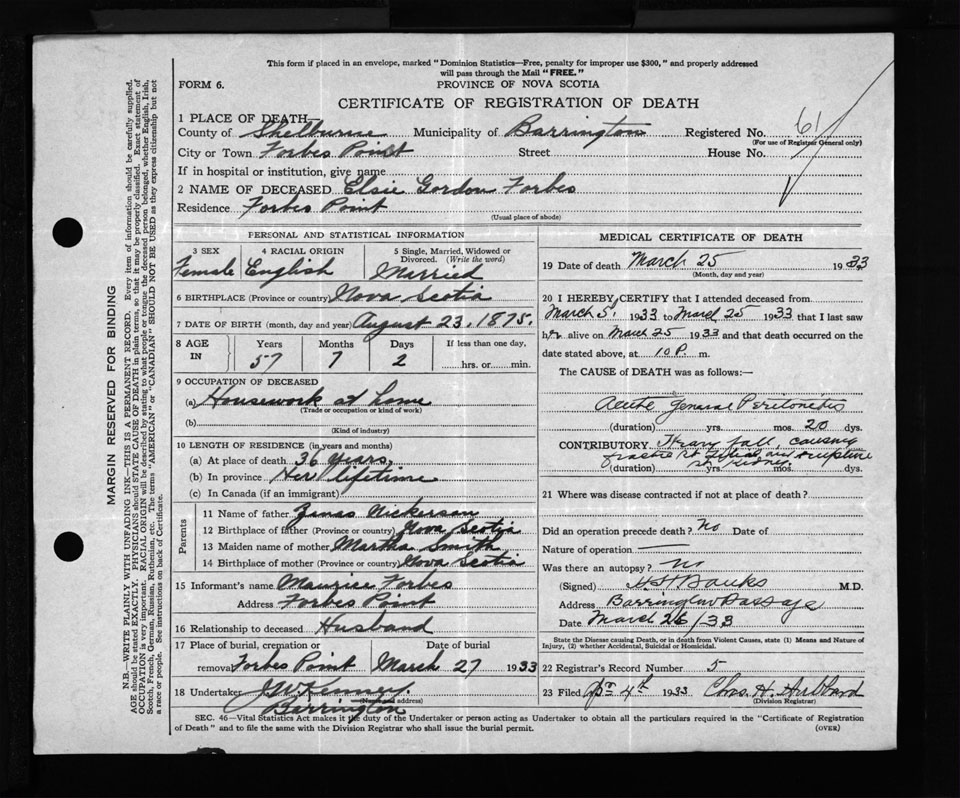 This form if placed in an envelope, marked "Dominion Statistics—Free, penalty for improper use $300," and properly addressed
will pass through the Mail "FREE."
FORM 6.
PROVINCE OF NOVA SCOTIA
CERTIFICATE OF REGISTRATION OF DEATH
1 PLACE OF DEATH
County of Shelburne Municipality of Barrington Registered No. 61
(For use of Registrar General only)
City or Town Forbes Point Street House No.
If in hospital or institution, give name
2 NAME OF DECEASED Elsie Gordon Forbes
Residence Forbes Point
(Usual place of abode)
PERSONAL AND STATISTICAL INFORMATION
3 SEX 4 RACIAL ORIGIN 5 Single, Married, Widowed or Divorced. (Write the word)
Female English Married
6 BIRTHPLACE (Province or country) Nova Scotia
7 DATE OF BIRTH (month, day and year) August 23, 1875.
8 AGE IN Years Months Days If less than one day,
57 7 2 hrs. or min.
9 OCCUPATION OF DECEASED
(a) Housework at home
(Trade or occupation or kind of work)
(b)
(Kind of industry)
10 LENGTH OF RESIDENCE (in years and months)
(a) At place of death 36 Years,
(b) In province Her lifetime
(c) In Canada (if an immigrant)
Parents
11 Name of father Zenas Nickerson
12 Birthplace of father (Province or country) Nova Scotia
13 Maiden name of mother Martha Smith
14 Birthplace of mother (Province or country) Nova Scotia
15 Informant's name Maurice Forbes
Address Forbes Point
16 Relationship to deceased Husband
17 Place of burial, cremation or Date of burial
removal Forbes Point March 27 1933
18 Undertaker J W Kenney.
(Name and address)
Barrington
MEDICAL CERTIFICATE OF DEATH
19 Date of death March 25 1933
(Month, day and year)
20 I HEREBY CERTIFY that I attended deceased from
March 5, 1933 to March 25 1933 that I last saw
her alive on March 25 1933 and that death occurred on the
date stated above, at 10 P. m.
The CAUSE of DEATH was as follows:—
Acute General Peritonitis
(duration) yrs. mos. 20 dys.
CONTRIBUTORY fall, causing
fracture and rupture
(duration) Kidney. yrs. mos. dys.
21 Where was disease contracted if not at place of death?
Did an operation precede death? No Date of
Nature of operation —
Was there an autopsy? No
(Signed) Banks M.D.
Address Barrington Passage
Date March 26/33
State the Disease causing Death, or in death from Violent Causes, state (1) Means and Nature of
Injury, (2) whether Accidental, Suicidal or Homicidal.
22 Registrar's Record Number 5
23 Filed Apr 4th 1933 Chas. H. Hubbard
(Division Registrar)
SEC. 46—Vital Statistics Act makes it the duty of the Undertaker or person acting as Undertaker to obtain all the particulars required in the "Certificate of Registration
of Death" and to file the same with the Division Registrar who shall issue the burial permit.
(OVER)
MARGIN RESERVED FOR BINDING
N.B.—WRITE PLAINLY WITH UNFADING INK—THIS IS A PERMANENT RECORD. Every item of information should be carefully supplied.
AGE should be stated EXACTLY. PHYSICIANS should STATE CAUSE OF DEATH in plain terms, so that it may be properly classified. Exact statement of
OCCUPATION is very important. RACIAL ORIGIN will be described by stating to what people or tongue the deceased person belonged, whether English, Irish,
Scotch, French, German, Russian, Ruthenian, etc. The terms "AMERICAN" or "CANADIAN" SHOULD NOT BE USED as they express citizenship but not
a race or people. See instructions on back of Certificate.